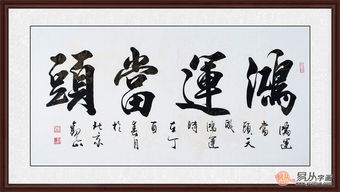 鴻運當頭
鴻運
當
頭天
鴻運
時
在丁
酉
春月
於
北京
易从字画